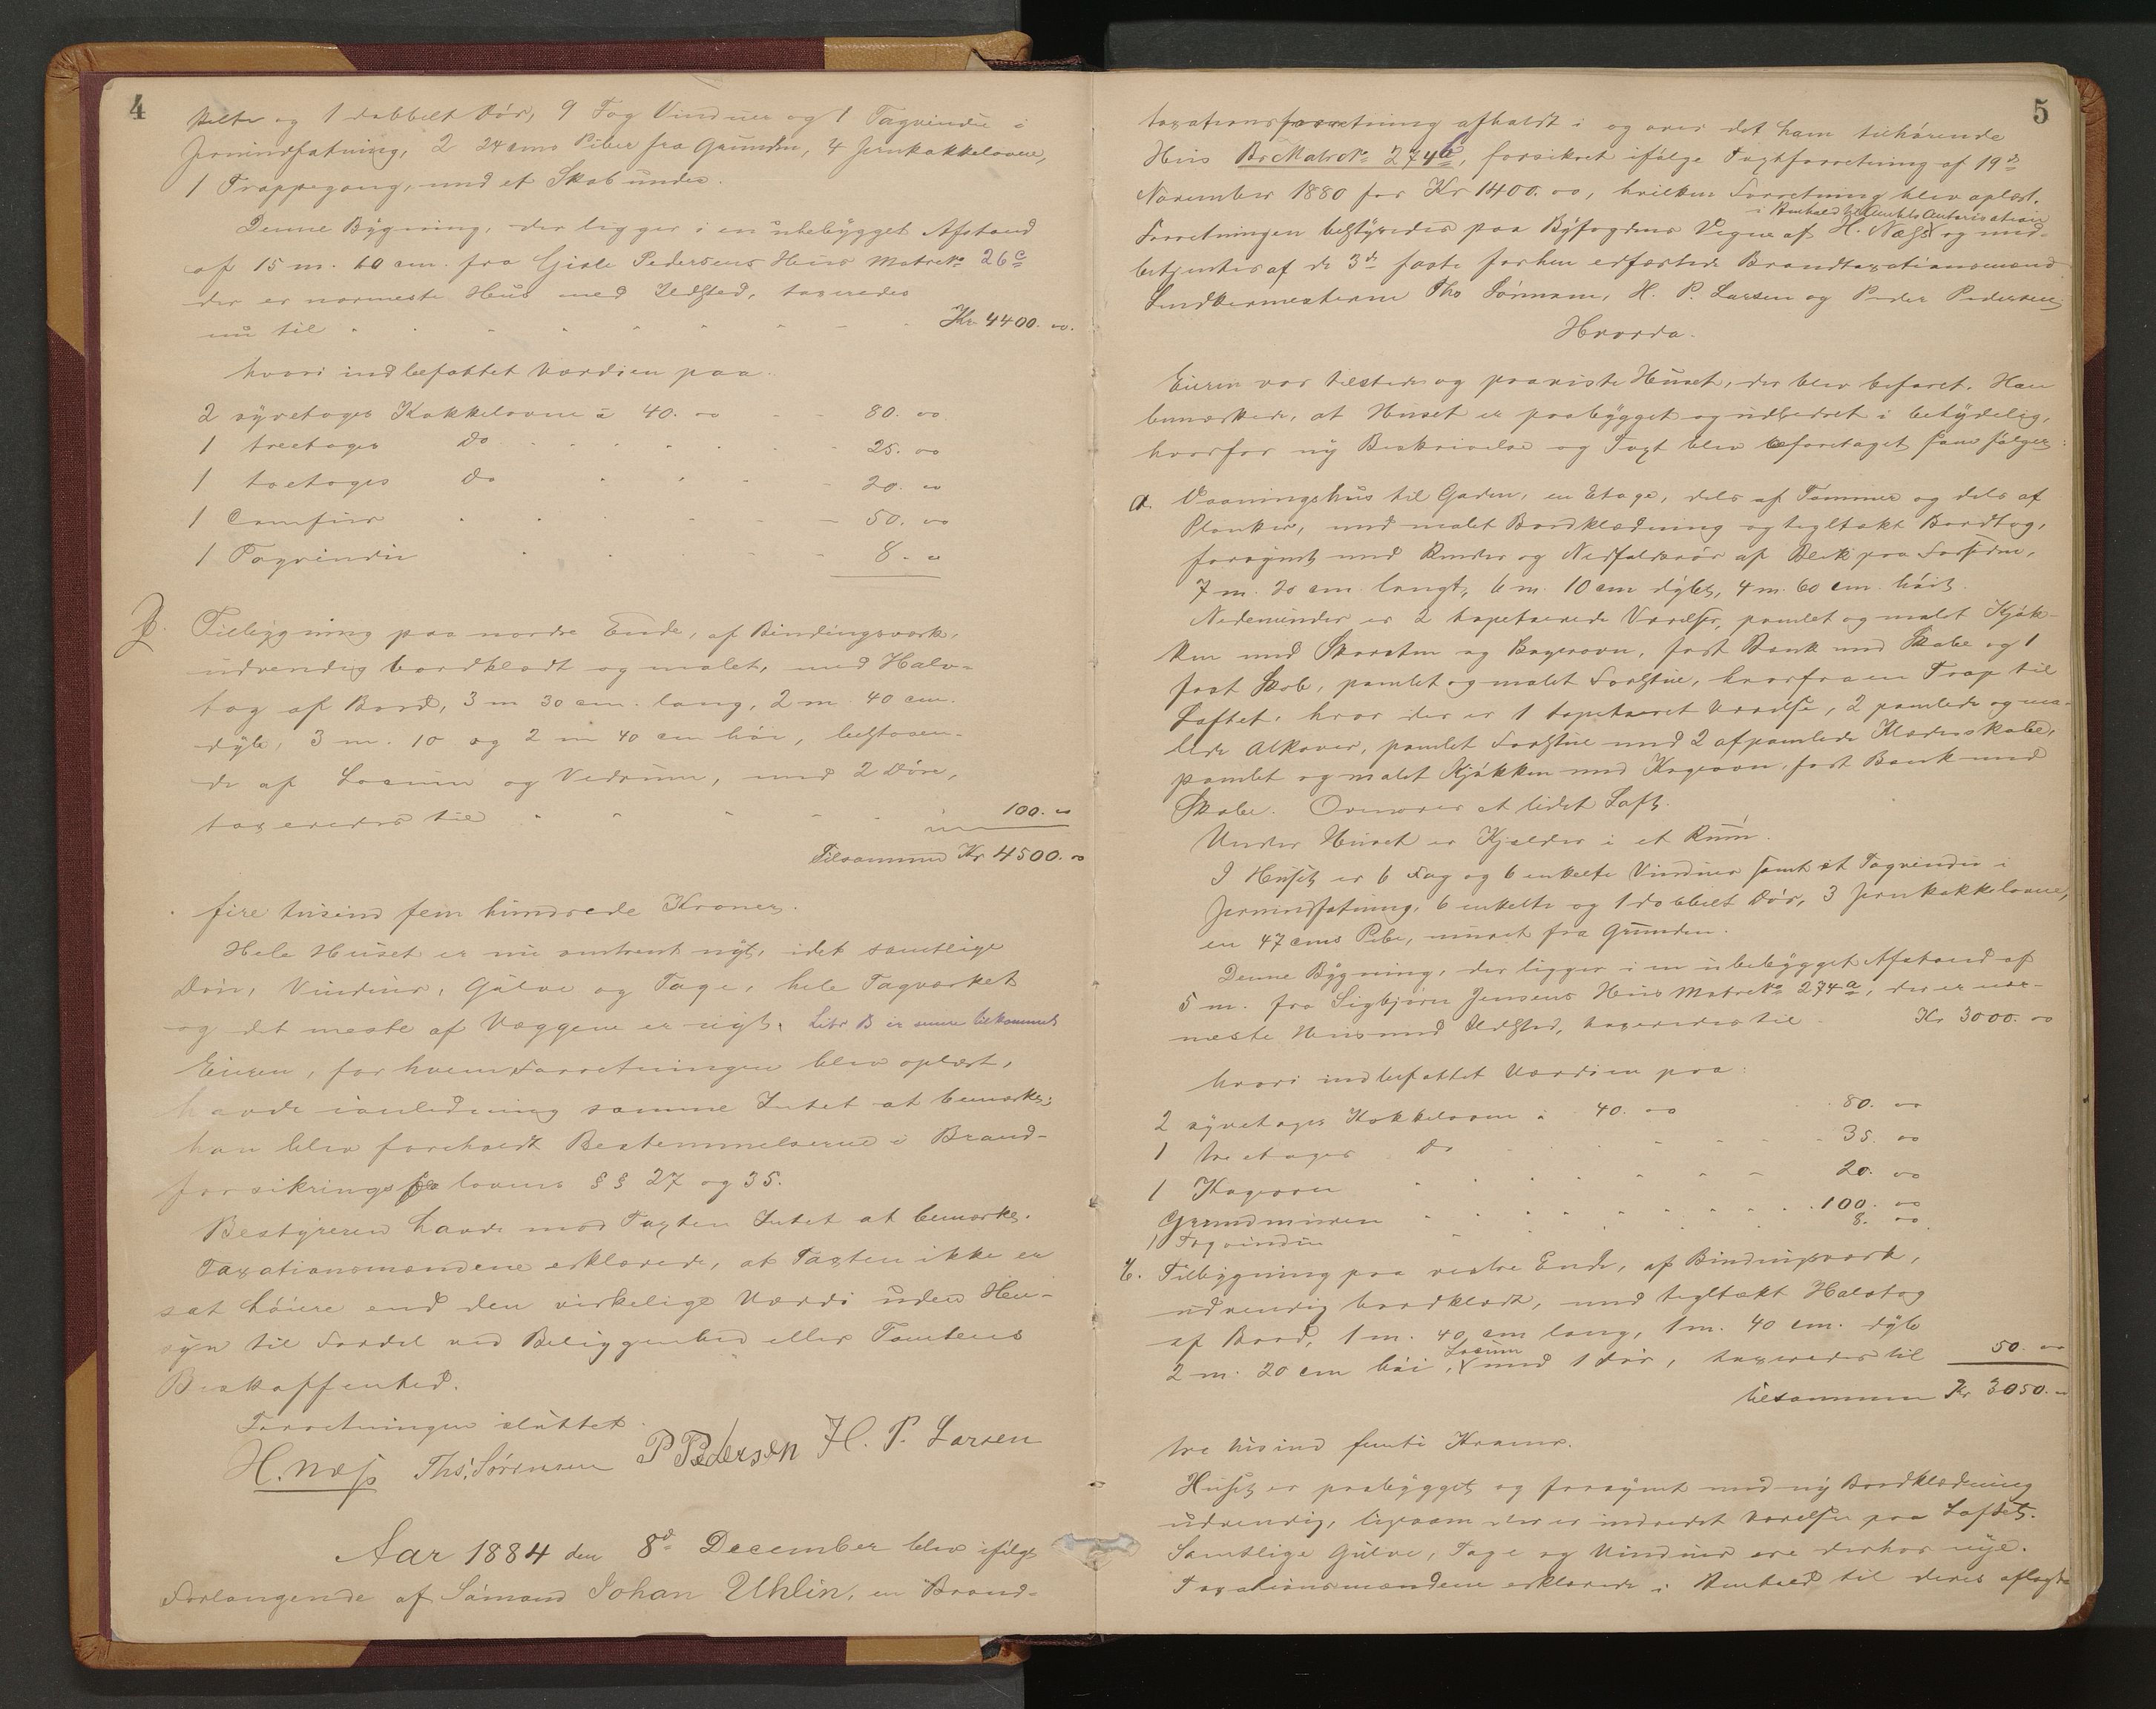 4
kelte og 1 dobbelt Dör, 9 Fag Vinduer og 1 Tagvindu i
Jernindfatning, 2 24 cms Piber fra Grunden, 4 Jernkakkelovne,
1 Trappegang, med et Skab under.
Denne Bygning, der ligger i en ubebygget Afstand
af 15 m. 60 cm. fra Gisle Pedersens Huus Matr No 26c
der er nærmeste Huus med Ildsted, taxeredes
nu til Kr 4400. 00.
hvori indbefattet Værdien paa:
2 syvetages Kakkelovne à 40. 00 80. 00
1 treetages Do 25. 00
1 toetages Do 20. 00
1 Comfur 50. 00
1 Tagvindu 8. 00
B. Tilbygning paa nordre Ende, af Bindingsværk,
udvendig bordklædt og malet, med Halv-
tag af Bord, 3 m 30 cm. lang, 2 m 40 cm.
dyb, 3 m. 10 og 2 m 40 cm höi, bestaaen-
de af Locum og Vedrum, med 2 Döre,
taxeredes til 100. 00
Tilsammen Kr 4500. 00
fire tusind fem hundrede Kroner.
Hele Huset er nu omtrent nyt, idet samtlige
Döre, Vinduer, Gulve og Tage, hele Tagværket
og det meste af Væggene er nyt. Litr B er senere tilkommet
Eieren, for hvem Forretningen blev oplæst,
havde i anledning samme Intet at bemærke;
han blev foreholdt Bestemmelserne i Brand-
forsikrings lovens §§ 27 og 35.
Bestyreren havde mod Taxten Intet at bemærke.
Taxationsmændene erklærede, at Taxten ikke er
sat höiere end den virkelige Værdi uden Hen-
syn til Fordel ved Beliggenhed eller Tomtens
Beskaffenhed.
Forretningen sluttet.
H. Næss Ths. Sörensen P Pedersen H. P. Larsen
Aar 1884 den 8de December blev ifölge
Forlangende af Sömand Johan Uhlin, en Brand-
5
taxationsforretning afholdt i og over det ham tilhörende
Huus Br Matr No 274b, forsikret ifölge Taxtforretning af 19de
November 1880 for Kr 1400. 00, hvilken Forretning blev oplæst.
i Henhold til Amtets Autorisation
Forretningen bestyredes paa Byfogdens Vegne af H. Næss og med-
betjentes af de 3de faste forhen edfæstede Brandtaxationsmænd
Snedkermesterne Ths Sörensen, H. P. Larsen og Peder Pedersen
Hvorda.
Eieren var tilstede og paaviste Huset, der blev befaret. Han
bemærkede, at Huset er paabygget og udbedret i betydelig,
hvorfor ny Beskrivelse og Taxt blev foretaget som fölger:
a. Vaaningshus til Gaden, en Etage, dels af Tömmer og dels af
Planker, med malet Bordklædning og tegltækt Bordtag,
forsynet med Render og Nedfaldsrör af Blik paa Forsiden,
7 m. 20 cm. langt, 6 m. 10 cm dybt, 4 m. 60 cm. höit.
Nedenunder er 2 tapetserede Værelser, panelet og malet Kjök-
ken med Skorsten og Bagerovn, fast Bænk med Skabe og 1
fast Skab, panelet og malet Forstue, hvorfra en Trap til
Loftet, hvor der er 1 tapetseret Værelse, 2 panelede og ma-
lede Alkover, panelet Forstue med 2 afpanelede Klædesskabe,
panelet og malet Kjökken med Kogeovn, fast Bænk med
Skabe. Ovenover et lidet Loft.
Under Huset er Kjelder i et Rum.
I Huset er 6 Fag og 6 enkelte Vinduer samt et Tagvindu i
Jernindfatning, 6 enkelte og 1 dobbelt Dör, 3 Jernkakkelovne,
en 47 cms Pibe, muret fra Grunden.
Denne Bygning, der ligger i en ubebygget Afstand af
5 m. fra Sigbjörn Jensens Huus Matr No 274a, der er nær-
meste Huus med Ildsted, taxeredes til Kr 3000. 00
hvori indbefattet Værdien paa:
2 syvetages Kakkelovne à 40. 00 80. 00
1 treetages Do 35. 00
1 Kogeovn 20. 00
Grundmuren 100. 00
1 Tagvindu 8. 00
b. Tilbygning paa vestre Ende, af Bindingsværk,
udvendig bordklædt, med tegltækt Halvtag
af Bord, 1 m. 40 cm lang, 1 m. 40 cm. dyb
Locum
2 m. 20 cm höi, med 1 Dör, taxeredes til 50. 00
tilsammen Kr. 3050. 00
tre tusind femti Kroner.
Huset er paabygget og forsynet med ny Bordklædning
udvendig, ligesom der er indredet Værelser paa Loftet.
Samtlige Gulve, Tage og Vinduer ere derhos nye.
Taxationsmændene erklærede i Henhold til deres aflagte